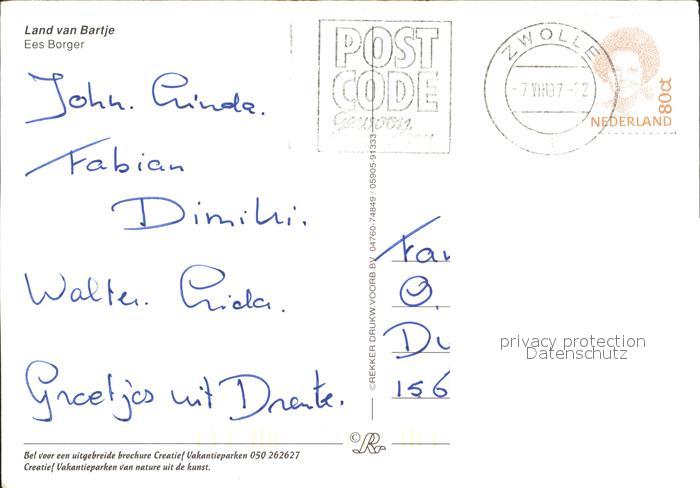 Land van Bartje
Ees Borger
John. Linda.
Fabian
Dimitri.
Walter. Lida.
Groetjes uit Drente.
Bel voor een uitgebreide brochure Creatief Vakantieparken 050 262627
Creatief Vakantieparken van nature uit de kunst.
POST
CODE
Gewoon
©REKKER DRUKW.VOORB.BV 04760-74849 / 05905-91333
©R
ZWOLLE
80ct
NEDERLAND
Fam
O.
Du
156
privacy protection
Datenschutz